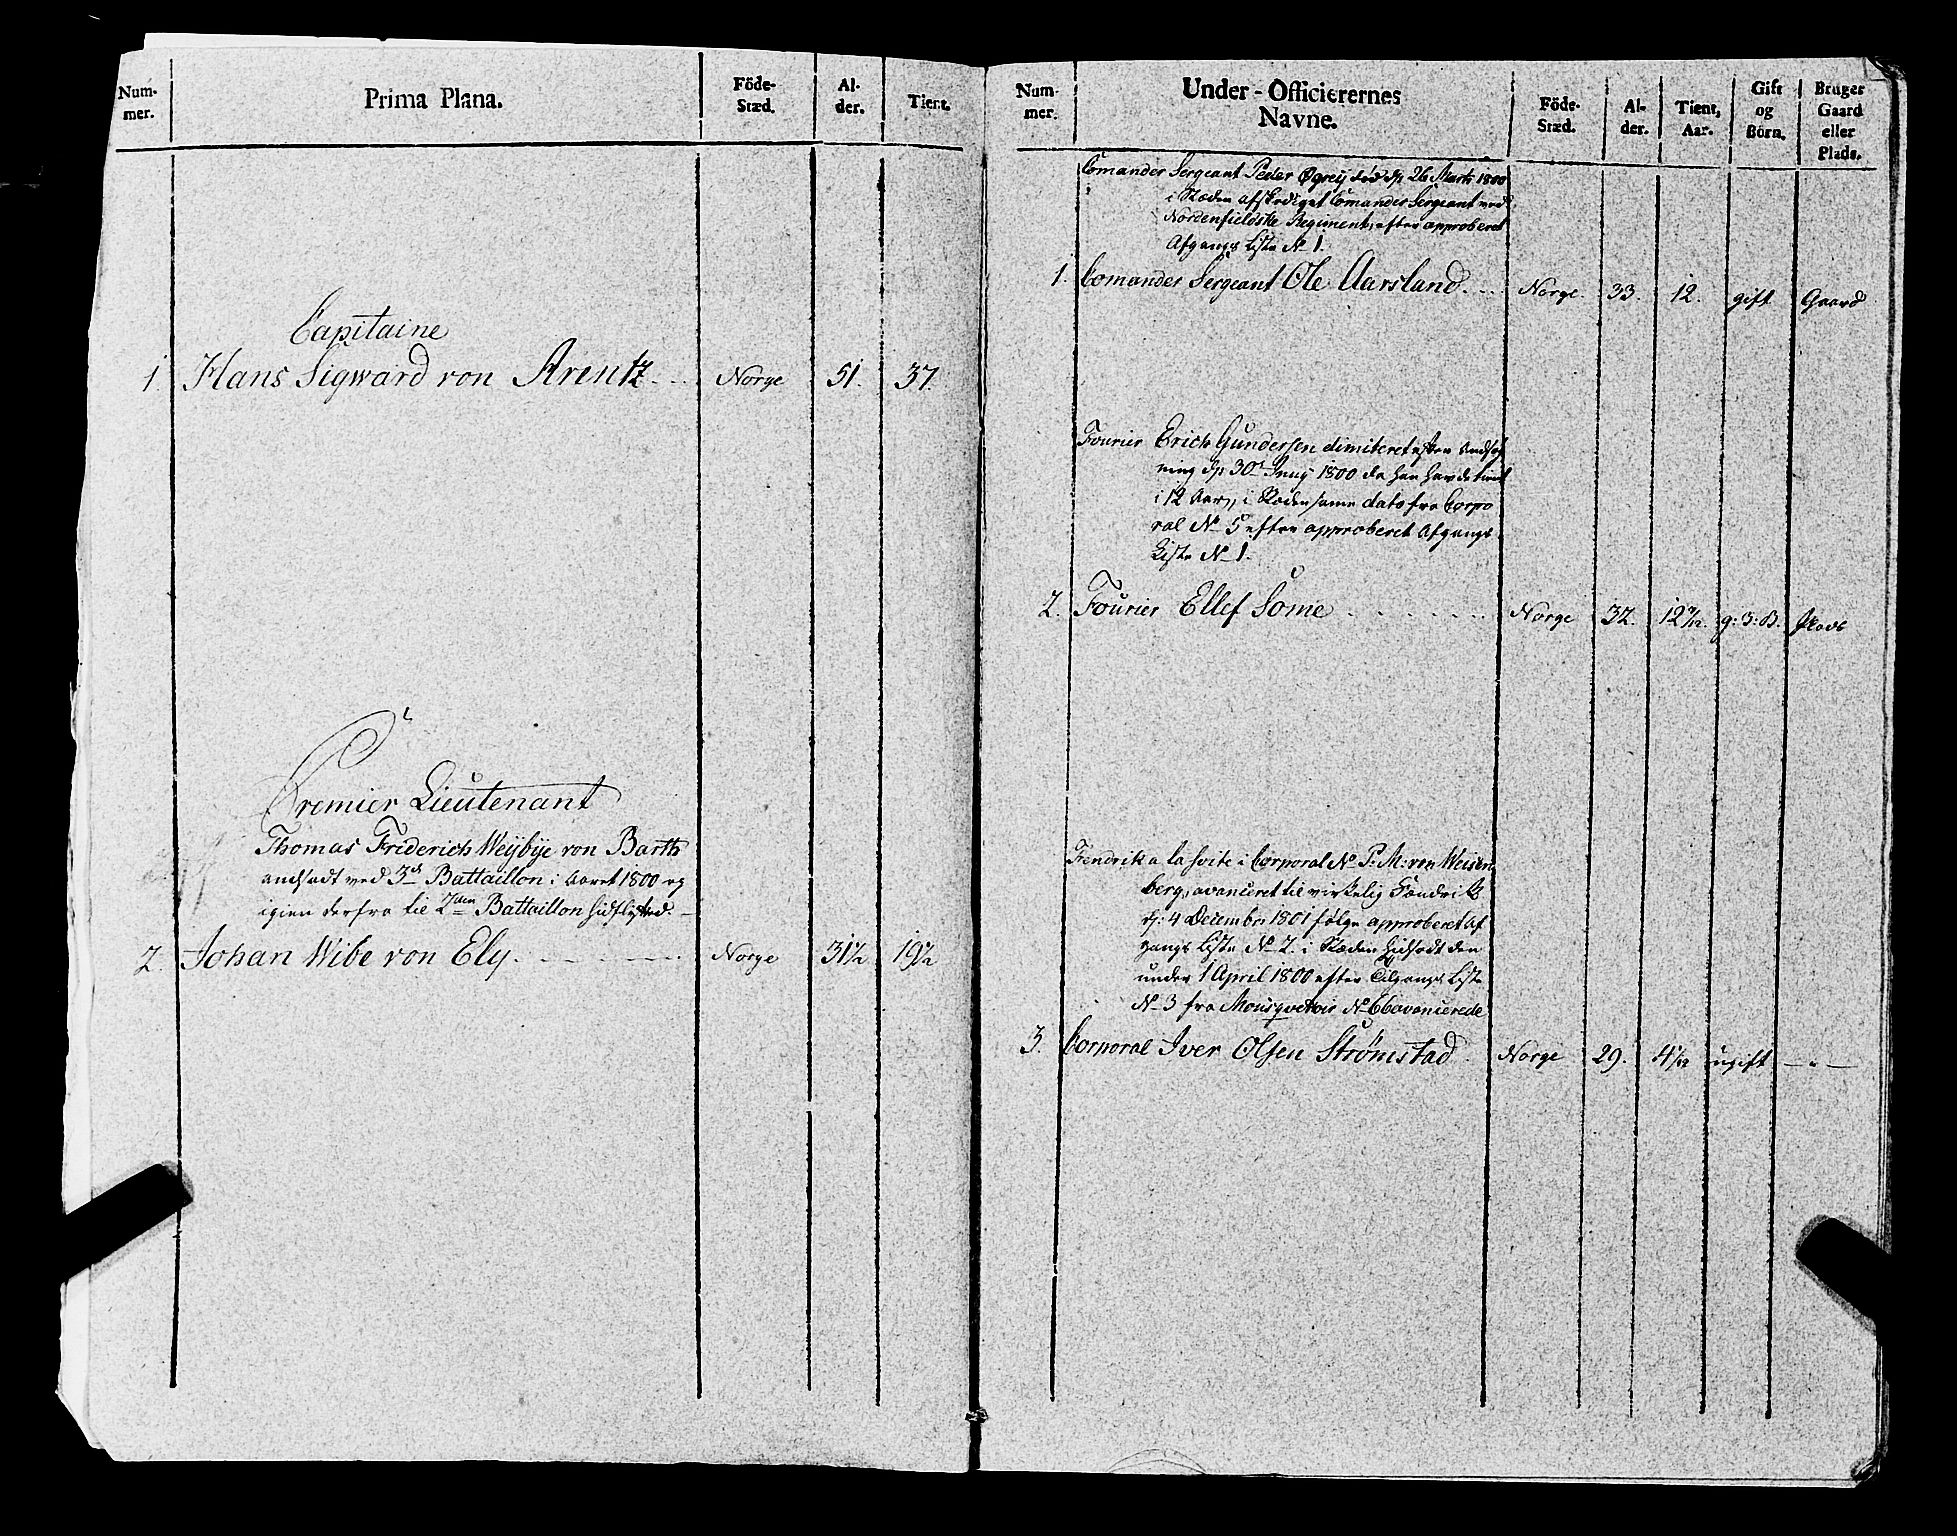 Num-
mer.
Prima Plana.
Föde-
Stæd.
Al-
der.
Tient.
Capitaine
1. Hans Sigward von Arentz Norge 51. 37.
Premier Lieutenant
Thomas Friderich Weybye von Barth
andsadt ved 3de Battaillon i Aaret 1800 og
igien derfra til 2den Battaillon hidflÿtted.
2. Johan Wibe von Ely. Norge 31½ 19½
Num-
mer.
Under-Officierernes
Navne.
Föde-
Stæd.
Al-
der.
Tient,
Aar.
Gift
og
Börn.
Bruger
Gaard
eller
Plads.
Comander Sergeant Peder død d: 26 Marts 1800
i Stæden afskediget Comander Sergeant ved
Nordenfieldske Regiment, efter approberet
Afgangs Liste No 1.
1. Comander Sergeant Ole Aarsland. Norge. 33. 12. gift. Gaard
Fourier Erich Gundersen dimiteret efter Ansøg
ning d: 30te Juny 1800 da han havde tient
i 12 Aar, i Stæden samme dato fra Corpo
ral No 5 efter approberet Afgangs
Liste No 1.
2. Fourier Ellef Some Norge 32. 12 g: 3: B. Plads
Fendrik a la Svite i Corporal No P: M: von Weisen
berg, avanceret til virkelig Fændrik
d: 4 Decembr 1801 følge approberet Af
gangs Liste No 2. i Stæden hidsadt den
under 1 April 1800 efter Tilgangs Liste
No 3 fra Mousqvetteir No 66 avancerede
3. Corporal Iver Olsen Strømstad. Norge 29. 4 ugift